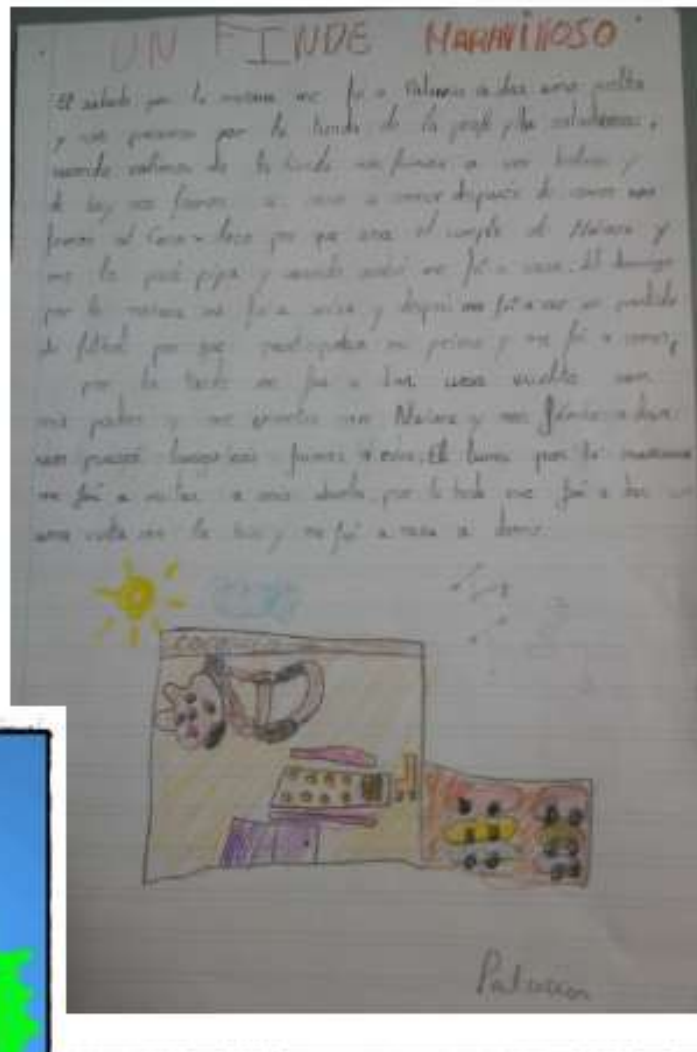 UN FINDE MARAVILLOSO
El sabado por la mañana me fui a a dar una vuelta
y nos pasamos por la tienda de la profe
cuando salimos de la tienda nos fuimos a ver y
de hay nos fuimos a casa a comer después de comer nos
fuimos al Coco-loco por que era el cumple de Naiara y
me lo pasé pipa y cuando me fui a casa. El domingo
por la mañana me fui a misa y me fui a ver un partido
de fútbol por que participaba mi primo y me fui a comer,
por la tarde me fui a dar una vuelta con
mis padres y me encontre con Naiara y nos fuimos a dar
un paseo luego nos fuimos a casa. El lunes por la mañana
me fui a visitar a mis abuelos por la tarde me fui a dar
una vuelta con la bici y me fui a casa a dormir.
COCO-LOCO